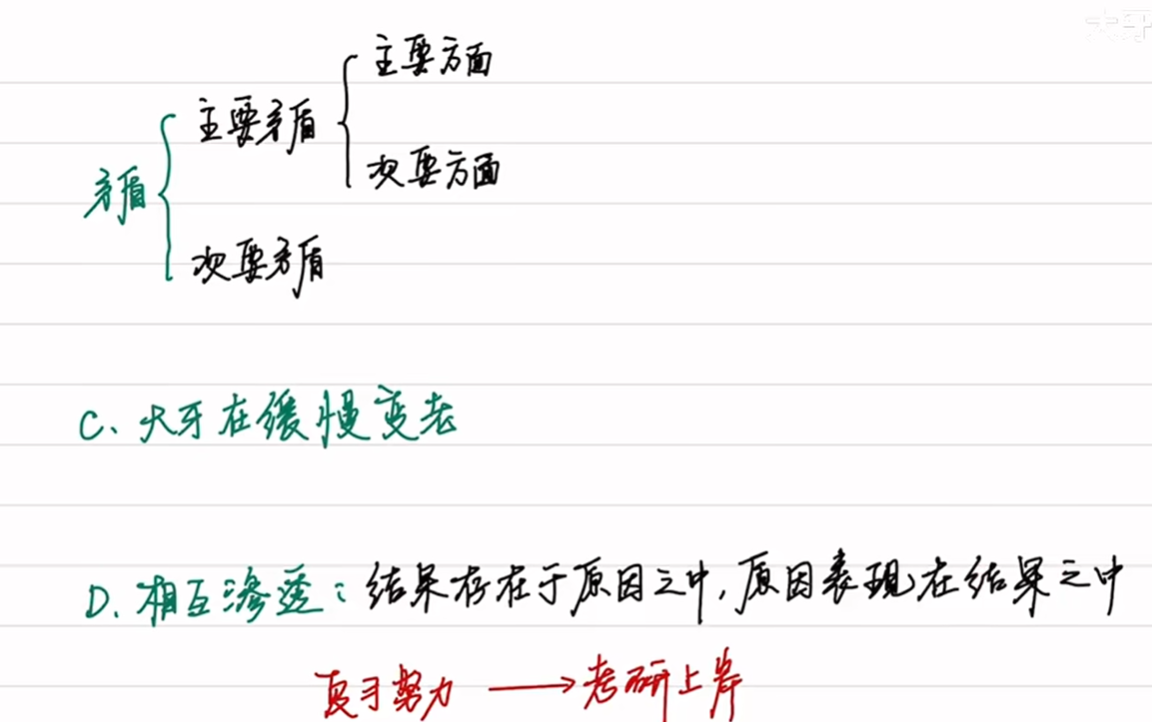 大牙
主要方面
主要矛盾
次要方面
矛盾
次要矛盾
C、大牙在缓慢变老
D、相互渗透：结果存在于原因之中，原因表现在结果之中
复习努力 → 考研上岸